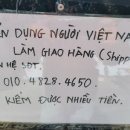 ỂN DỤNG NGƯỜI VIỆT NA
LÀM GIAO HÀNG (Shipp
ÊN HỆ SĐT.
010.4828.4650.
KIẾM ĐƯỢC NHIỀU TIỀN.